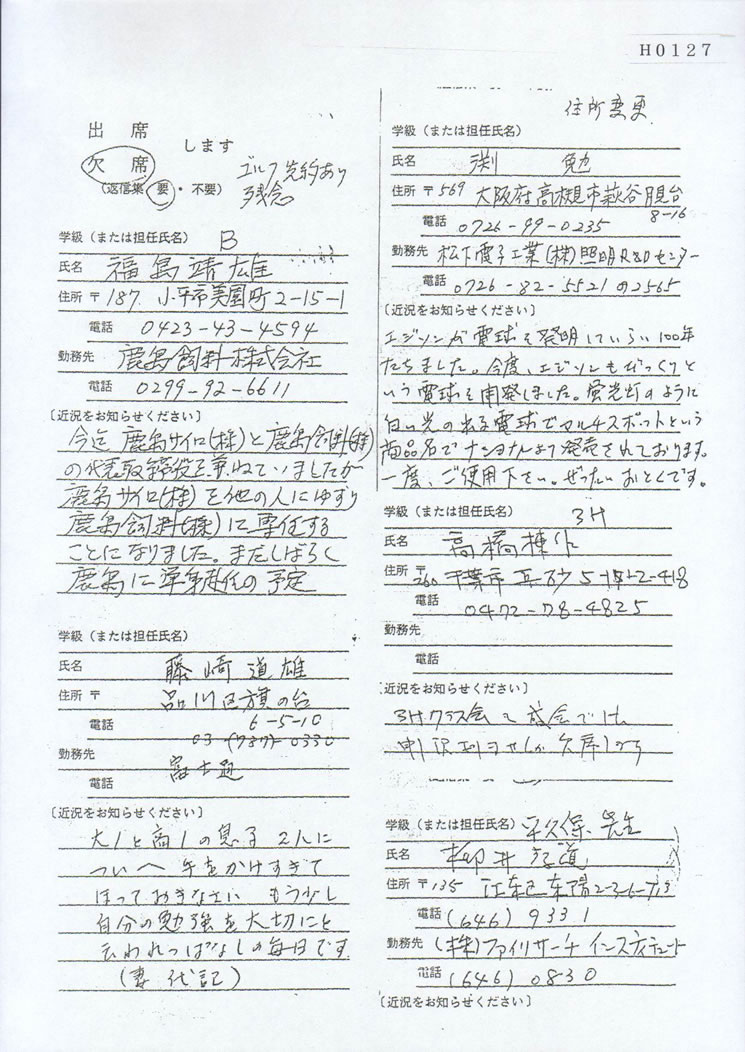 H0127
出席
欠席
します
(返信集 要・不要)
ゴルフ先約あり
残念
学級(または担任氏名) B
氏名 福島靖雄
住所 〒187 小平市美園町2-15-1
電話 0423-43-4594
勤務先 鹿島飼料株式会社
電話 0299-92-6611
〔近況をお知らせください〕
今迄鹿島サイロ(株)と鹿島飼料(株)
の代表取締役を兼ねていましたが
鹿島サイロ(株)を他の人にゆずり
鹿島飼料(株)に専任する
ことになりました。まだしばらく
鹿島に単身赴任の予定
学級(または担任氏名)
氏名 藤崎道雄
住所 〒 品川区旗の台
6-5-10
電話 03-(787)-0330
勤務先 富士通
電話
〔近況をお知らせください〕
大1と高1の息子2人に
ついへ手をかけすぎて
ほっておきなさい もう少し
自分の勉強を大切にと
云われっぱなしの毎日です
(妻代記)
住所変更
学級(または担任氏名)
氏名 渕 勉
住所 〒569 大阪府高槻市萩谷月見台
8-16
電話 0726-99-0235
勤務先 松下電子工業(株)照明R&Dセンター
電話 0726-82-5521の2565
〔近況をお知らせください〕
エジソンが電球を発明していらい100年
たちました。今度、エジソンもびっくりと
いう電球を開発しました。蛍光灯のように
白い光の出る電球でマルチスポットという
商品名でナショナルより発売されております。
一度、ご使用下さい。ぜったいおとくです。
学級(または担任氏名) 3H
氏名 高橋棟作
住所 〒260 千葉市真砂5-15-2-418
電話 0472-78-4825
勤務先
電話
〔近況をお知らせください〕
3Hクラス会も盛会では
申し訳ありませんが欠席します
学級(または担任氏名) 平久保先生
氏名 柳井弘道
住所 〒135 江東区東陽2-3-6-713
電話 (646) 9331
勤務先 (株)ファイリサーチインスティテュート
電話 (646) 0830
〔近況をお知らせください〕